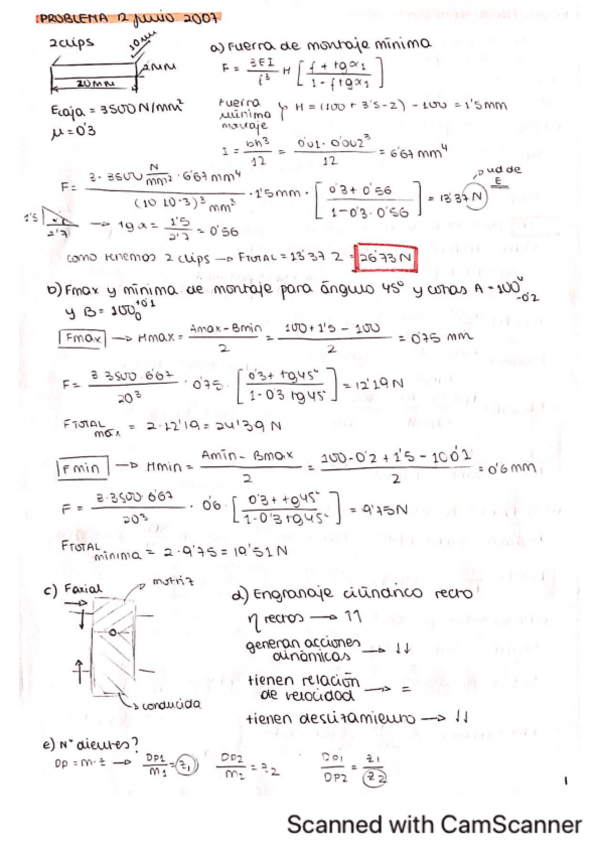 PROBLEMA 12 junio 2007
2 clips
10mm
2mm
20mm
a) Fuerza de montaje mínima
F = 3EI / l³ · H [ f + tgα₁ / 1 - f tgα₁ ]
Ecaja = 3500 N/mm²
μ = 0'3
Fuerza mínima montaje → H = (100 + 3'5 - 2) - 100 = 1'5mm
I = bh³ / 12 = 0'01 · 0'002³ / 12 = 6'67 mm⁴
F = 3 · 3500 N/mm² · 6'67 mm⁴ / (20 · 10^-3)³ mm³ · 1'5mm · [ 0'3 + 0'56 / 1 - 0'3 · 0'56 ] = 13'37 N → ud de E
1'5
2'7
→ tgα = 1'5 / 2'7 = 0'56
como tenemos 2 clips → FTOTAL = 13'37 · 2 = 26'73 N
b) Fmax y mínima de montaje para ángulo 45° y cotas A = 100 0 -0'2
y B = 100 +0'1 0
Fmax → Hmax = Amax - Bmin / 2 = 100 + 1'5 - 100 / 2 = 0'75 mm
F = 3 · 3500 · 6'67 / 20³ · 0'75 · [ 0'3 + tg45° / 1 - 0'3 tg45° ] = 12'19 N
FTOTAL max = 2 · 12'19 = 24'39 N
Fmin → Hmin = Amín - Bmax / 2 = 100 - 0'2 + 1'5 - 100'1 / 2 = 0'6 mm
F = 3 · 3500 · 6'67 / 20³ · 0'6 · [ 0'3 + tg45° / 1 - 0'3 tg45° ] = 9'75 N
FTOTAL mínima = 2 · 9'75 = 19'51 N
c) Faxial
motriz
conducida
d) Engranaje cilíndrico recto
η rectos → ↑↑
generan acciones dinámicas → ↓↓
tienen relación de velocidad → =
tienen deslizamiento → ↓↓
e) Nº dientes?
Dp = m · z → Dp1 / m1 = z1   Dp2 / m2 = z2   Dp1 / Dp2 = z1 / z2
1
Scanned with CamScanner